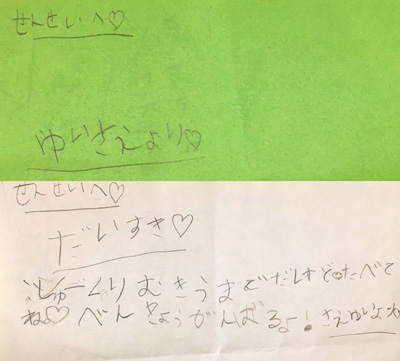 せんせいへ♡
ゆいさえより♡
せんせいへ♡
だいすき♡
しゅーくりむきうまでだけどたべて
ね♡べんきょうがんばるよ!さえゆいよ